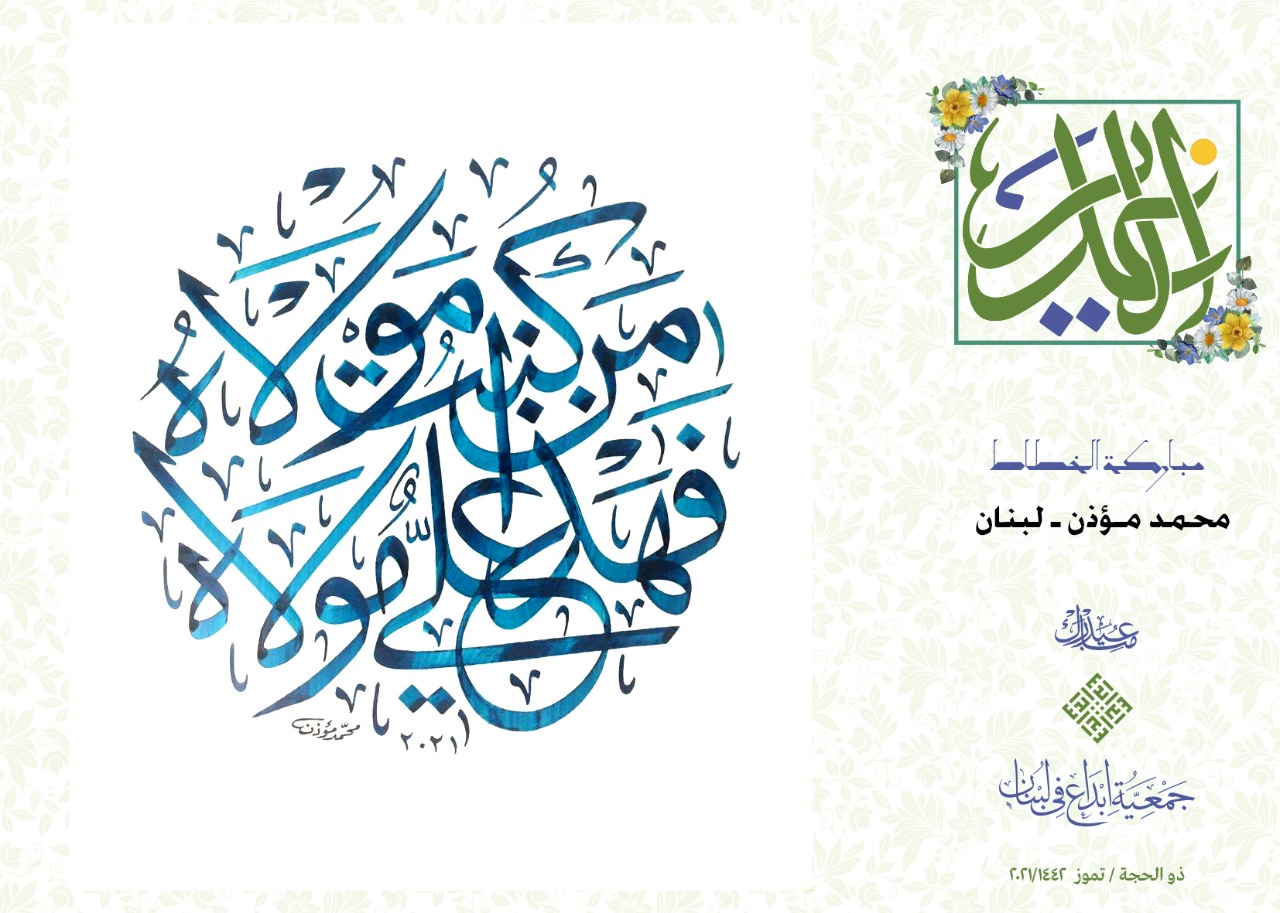 مَن كنت مَولاه
فهٰذا عليّ مولاه
محمّد مؤذن
٢٠٢١
الغدير
مباركة الخطاط
محمد مؤذن - لبنان
عيد مبارك
جَمْعِيَّةُ ابْدَاع فِي لُبْنَان
ذو الحجة / تموز ٢٠٢١/١٤٤٢